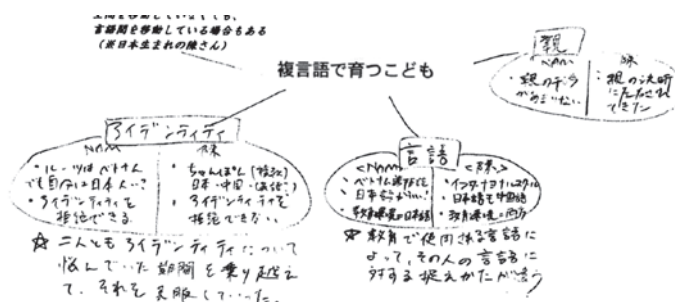 言語間を移動している場合もある
(※日本生まれの陳さん)
複言語で育つこども
親
NAM
陳
・親の
・親の決断
に左右され
てきた
アイデンティティ
NAM
陳
・ルーツはベトナム
でも自分は日本人…?
・アイデンティティを
拒絶できる
・ちゃんぽん(複数)
日本・中国・
・アイデンティティを
拒絶できない
☆ 二人ともアイデンティティについて
悩んでいた期間を乗り越え
て、それを克服していった。
言語
<NAM>
<陳>
・日本語がいい!
・教育環境は日本語
・インターナショナルスクール
・日本語も中国語
・教育環境は両方
☆ 教育で使用される言語に
よって、その人の言語に
対する捉えかたが違う